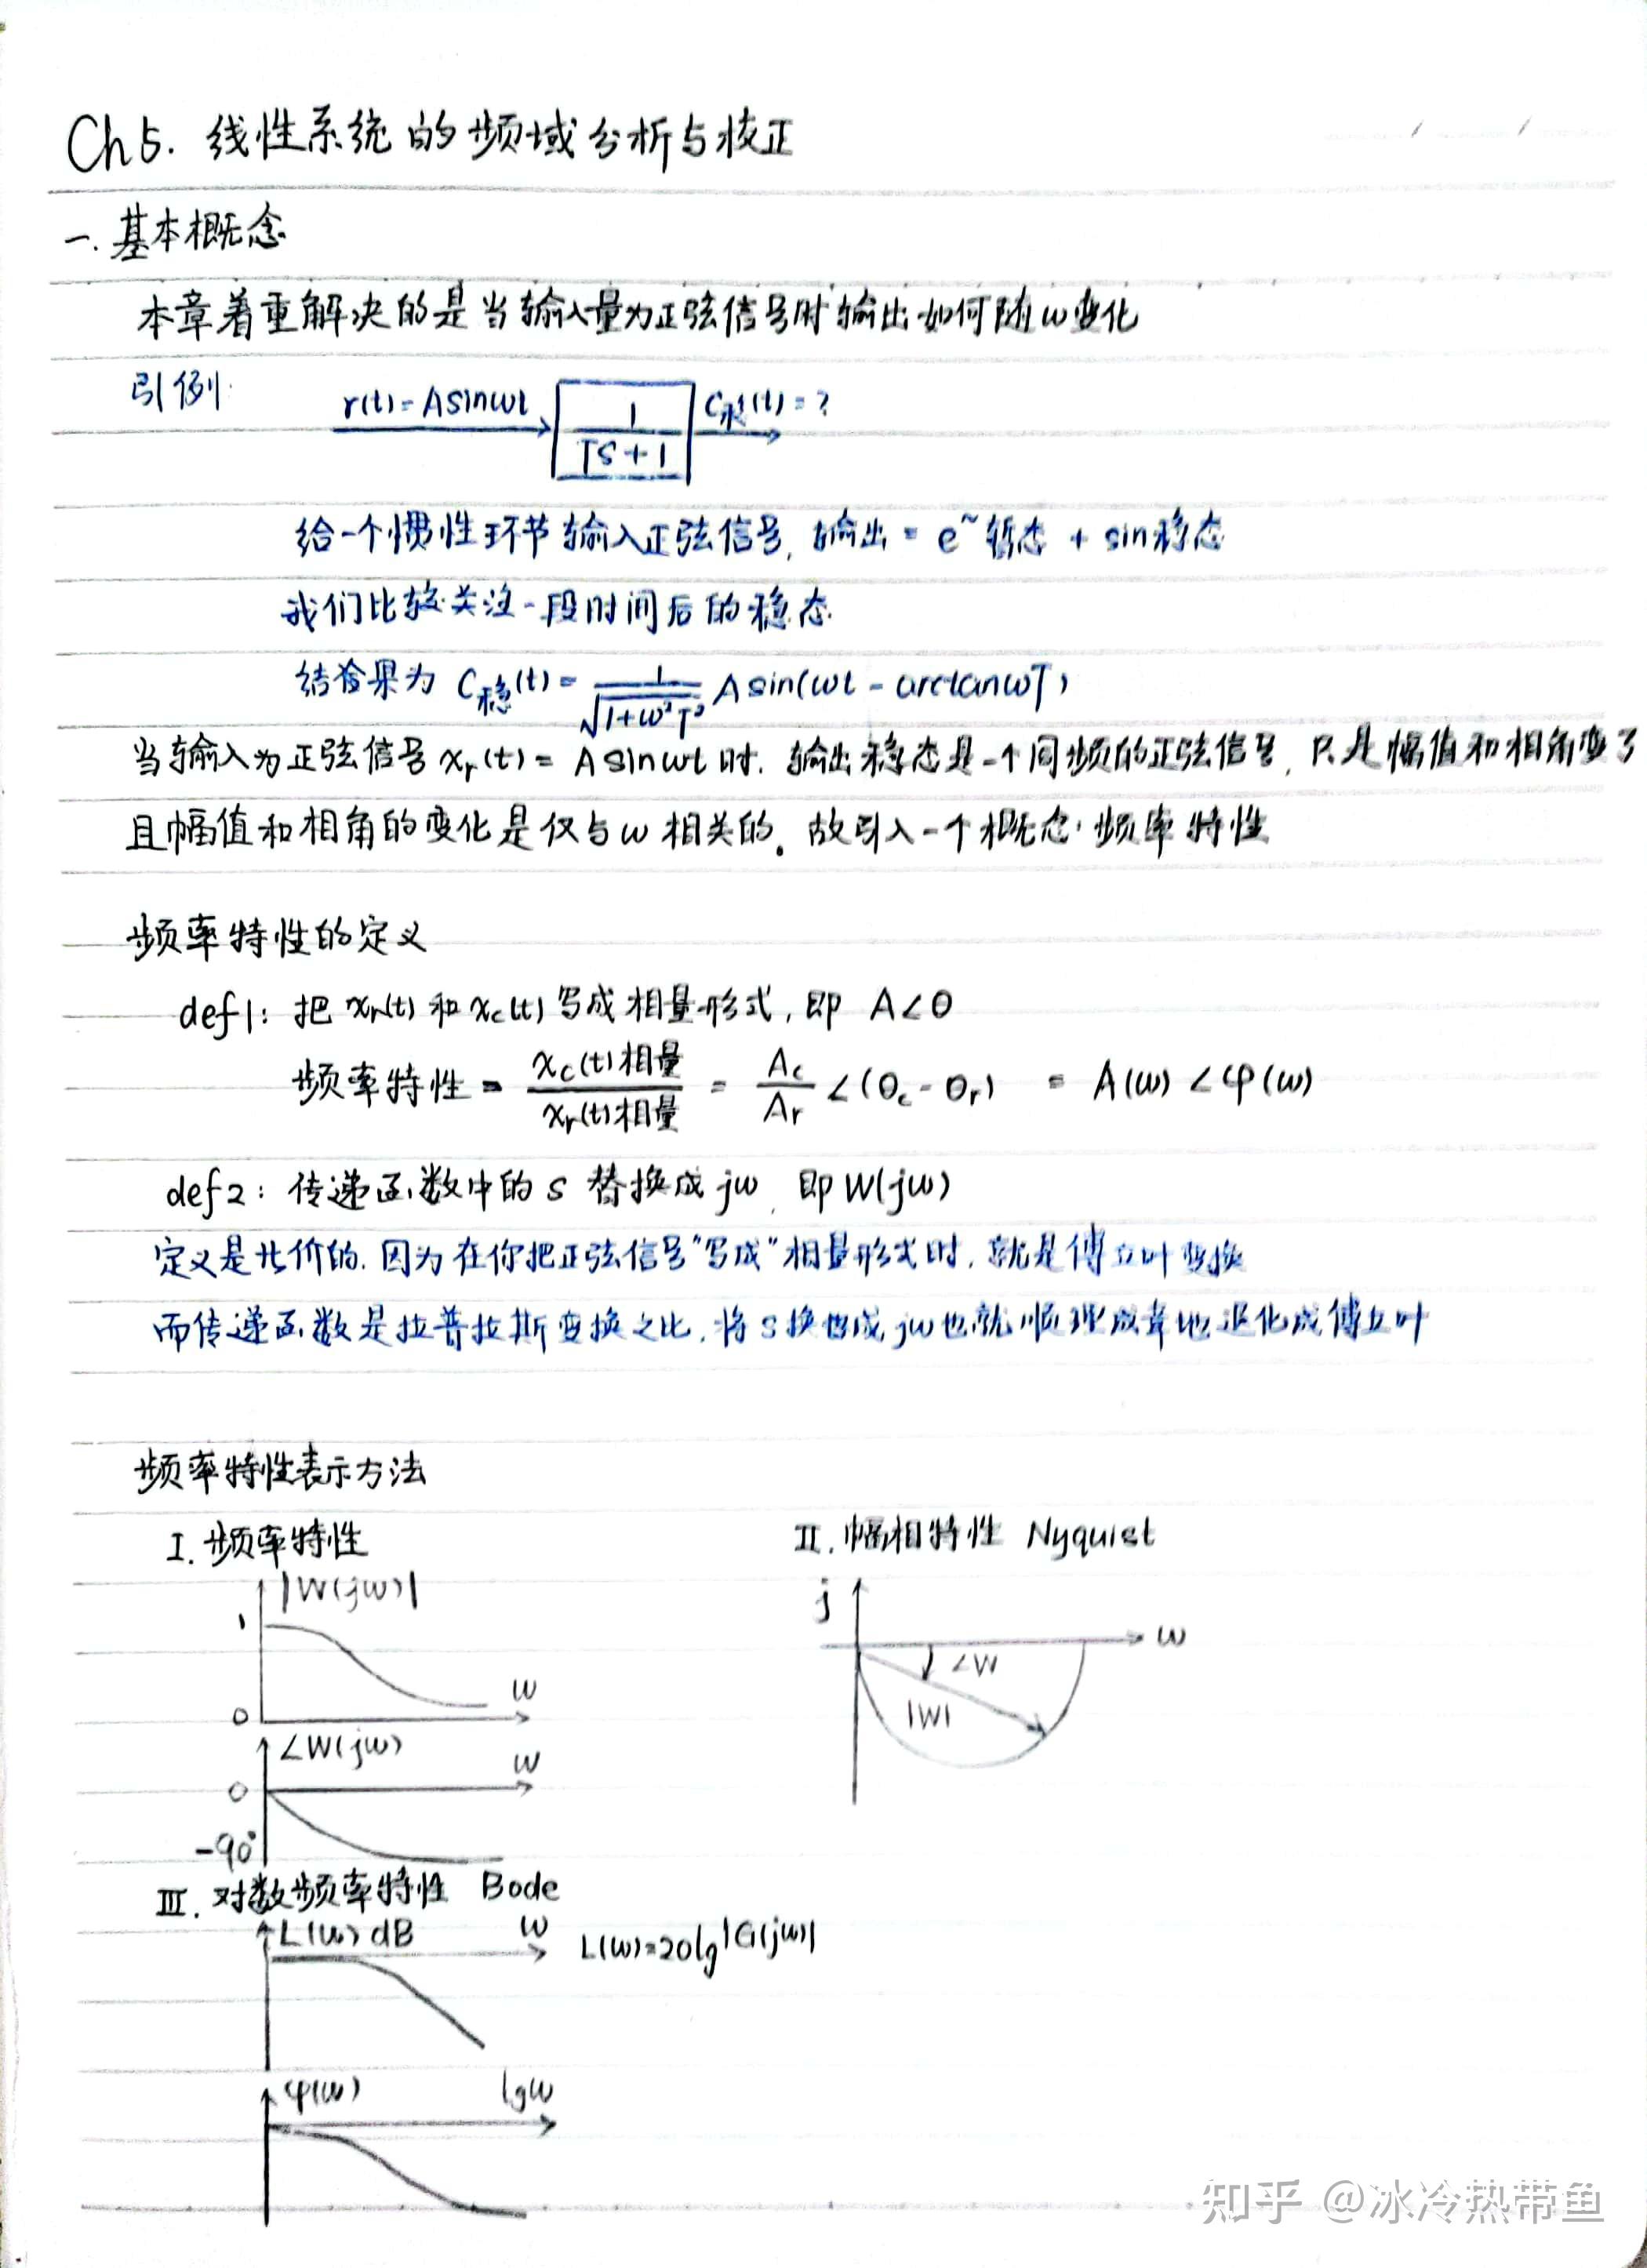 Ch5. 线性系统的频域分析与校正
一. 基本概念
本章着重解决的是当输入量为正弦信号时输出如何随ω变化
引例:
r(t)=Asinωt
1
TS+1
C稳(t)=?
给一个惯性环节输入正弦信号, 输出 = e~暂态 + sin稳态
我们比较关注一段时间后的稳态.
结果为 C稳(t)= 1/√(1+ω²T²) A sin(ωt - arctanωT)
当输入为正弦信号 xr(t) = Asinωt 时. 输出稳态是一个同频的正弦信号, 只是幅值和相角变了
且幅值和相角的变化是仅与ω相关的。故引入一个概念: 频率特性
频率特性的定义
def1: 把 xr(t) 和 xc(t) 写成相量形式, 即 A∠θ
频率特性 = xc(t)相量/xr(t)相量 = Ac/Ar ∠(θc-θr) = A(ω)∠φ(ω)
def2: 传递函数中的 s 替换成 jω, 即 W(jω)
定义是等价的. 因为在你把正弦信号"写成"相量形式时, 就是傅立叶变换
而传递函数是拉普拉斯变换之比, 将 s 换成 jω 也就顺理成章地退化成傅立叶
频率特性表示方法
I. 频率特性
II. 幅相特性 Nyquist
|W(jω)|
1
0
ω
j
ω
∠W
|W|
∠W(jω)
ω
0
-90°
III. 对数频率特性 Bode
L(ω) dB
ω
L(ω)=20lg|G(jω)|
φ(ω)
lgω
知乎 @冰冷热带鱼